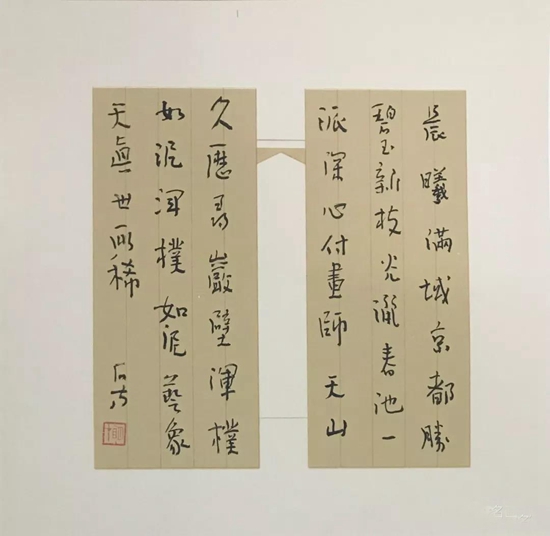 晨曦满城京都勝
碧玉新枝光溢春池一
派深心付畫師天山
久歷尋巖壁渾樸
如泥渾樸如泥藝象
天真世所稀